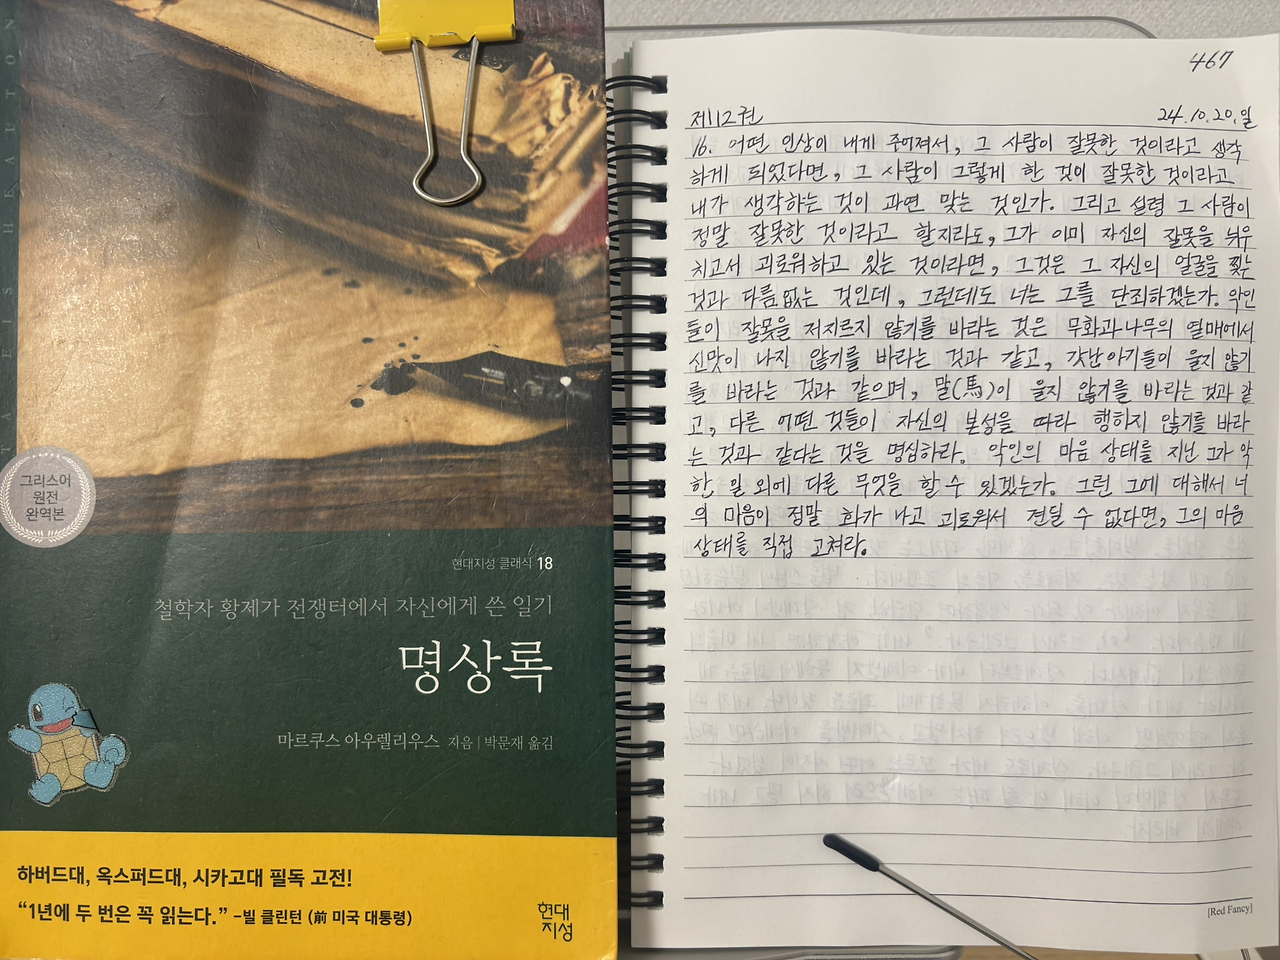 TA EIS HEAUTON
그리스어
원전
완역본
현대지성 클래식 18
철학자 황제가 전쟁터에서 자신에게 쓴 일기
명상록
마르쿠스 아우렐리우스 지음 | 박문재 옮김
하버드대, 옥스퍼드대, 시카고대 필독 고전!
“1년에 두 번은 꼭 읽는다.” –빌 클린턴 (前 미국 대통령)
현대
지성
467
제12권 24.10.20.일
16. 어떤 인상이 내게 주어져서, 그 사람이 잘못한 것이라고 생각
하게 되었다면, 그 사람이 그렇게 한 것이 잘못한 것이라고
내가 생각하는 것이 과연 맞는 것인가. 그리고 설령 그 사람이
정말 잘못한 것이라고 할지라도, 그가 이미 자신의 잘못을 뉘우
치고서 괴로워하고 있는 것이라면, 그것은 그 자신의 얼굴을 찢는
것과 다름없는 것인데, 그런데도 너는 그를 단죄하겠는가. 악인
들이 잘못을 저지르지 않기를 바라는 것은 무화과나무의 열매에서
신맛이 나지 않기를 바라는 것과 같고, 갓난아기들이 울지 않기
를 바라는 것과 같으며, 말(馬)이 울지 않기를 바라는 것과 같
고, 다른 어떤 것들이 자신의 본성을 따라 행하지 않기를 바라
는 것과 같다는 것을 명심하라. 악인의 마음 상태를 지닌 그가 악
한 일 외에 다른 무엇을 할 수 있겠는가. 그런 그에 대해서 너
의 마음이 정말 화가 나고 괴로워서 견딜 수 없다면, 그의 마음
상태를 직접 고쳐라.
[Red Fancy]